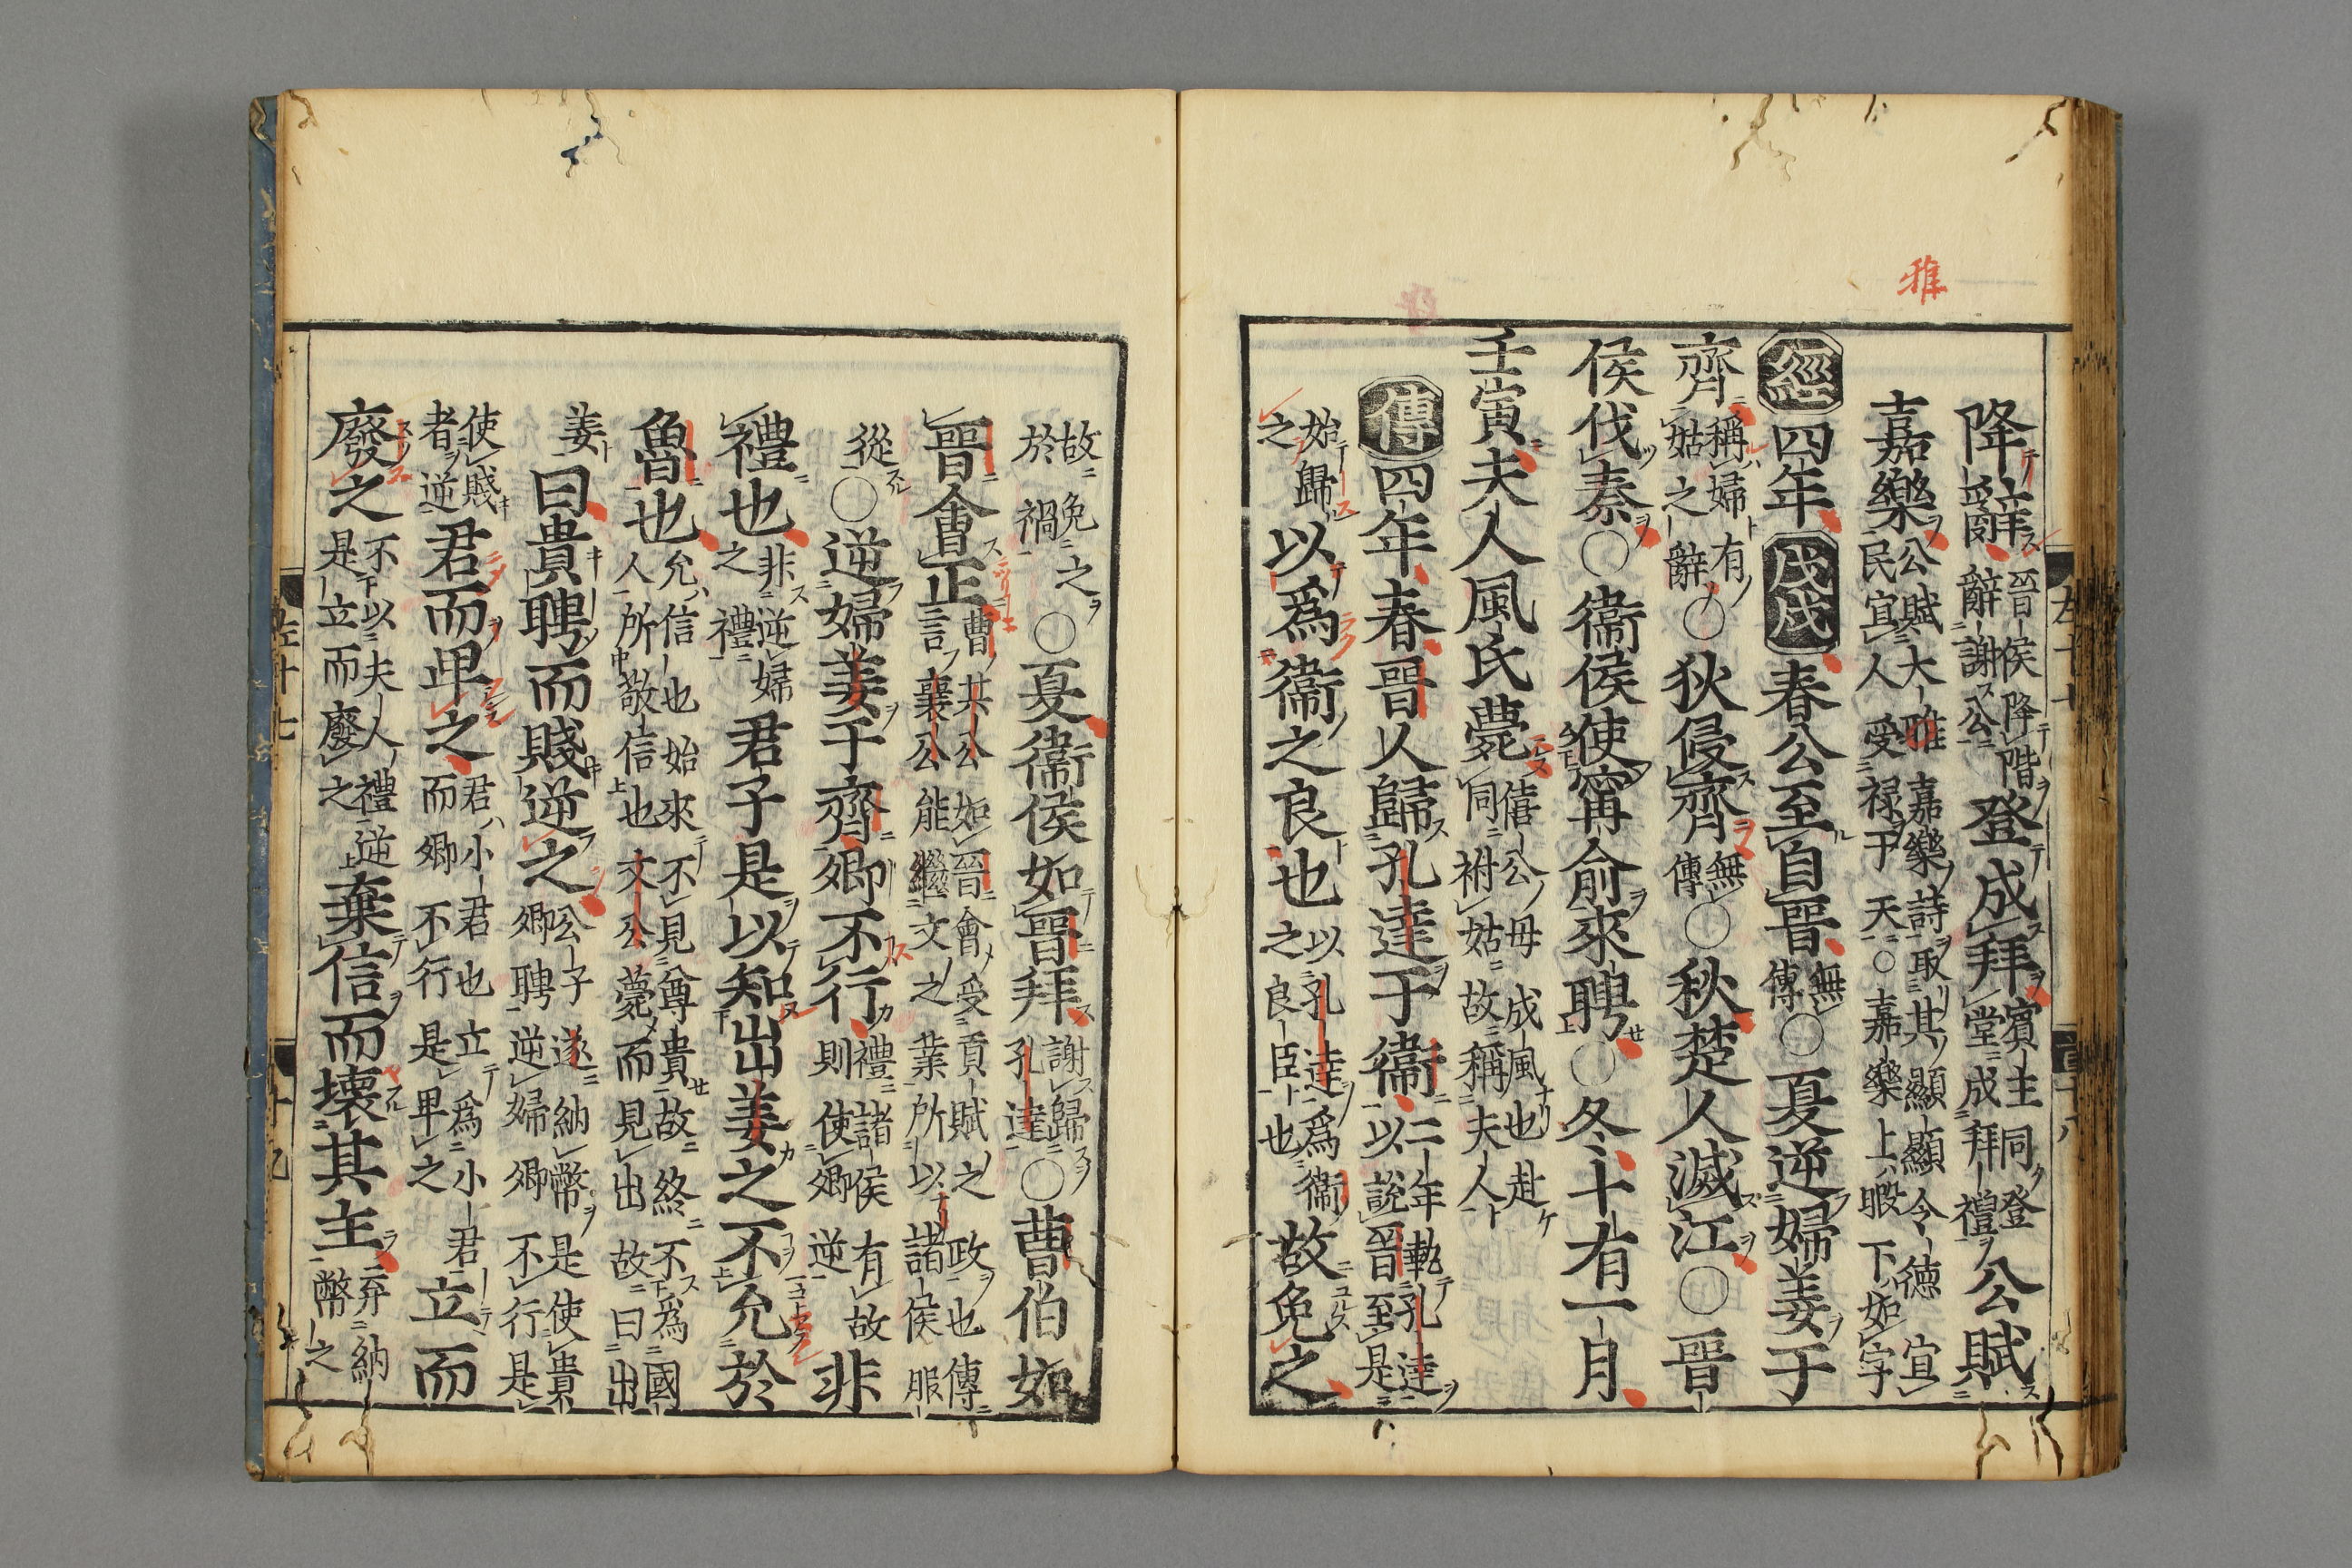 雅
降辭晉侯降階辭謝公登成拜賓主同登堂成拜禮公賦
嘉樂公賦大雅嘉樂詩取其顯顯令德宜民宜人受祿于天○嘉樂上暇下如字
經四年戊戌春公至自晉無傳○夏逆婦姜于
齊稱婦有姑之辭○狄侵齊無傳○秋楚人滅江○晉
侯伐秦○衞侯使甯俞來聘○冬十有一月
壬寅夫人風氏薨僖公母成風也赴同祔姑故稱夫人
傳四年春晉人歸孔達于衞二年執孔達以說晉至是
始歸之以爲衞之良也以孔達爲衞之良臣也故免之
故免之於禍○夏衞侯如晉拜謝歸孔達○曹伯如
晉會正曹共公如晉會受貢賦之政也傳言襄公能繼文之業所以諸侯服
從○逆婦姜于齊卿不行禮諸侯有故則使卿逆非
禮也非逆婦之禮君子是以知出姜之不允於
魯也允信也始來不見尊貴故終不爲國人所敬信也文公薨而見出故曰出
姜曰貴聘而賤逆之公子遂納幣是使貴卿聘逆婦卿不行是
使賤者逆君而卑之君小君也立爲小君而卿不行是卑之立而
廢之不以夫人禮逆是立而廢之棄信而壞其主弃納幣之
左十七
十九